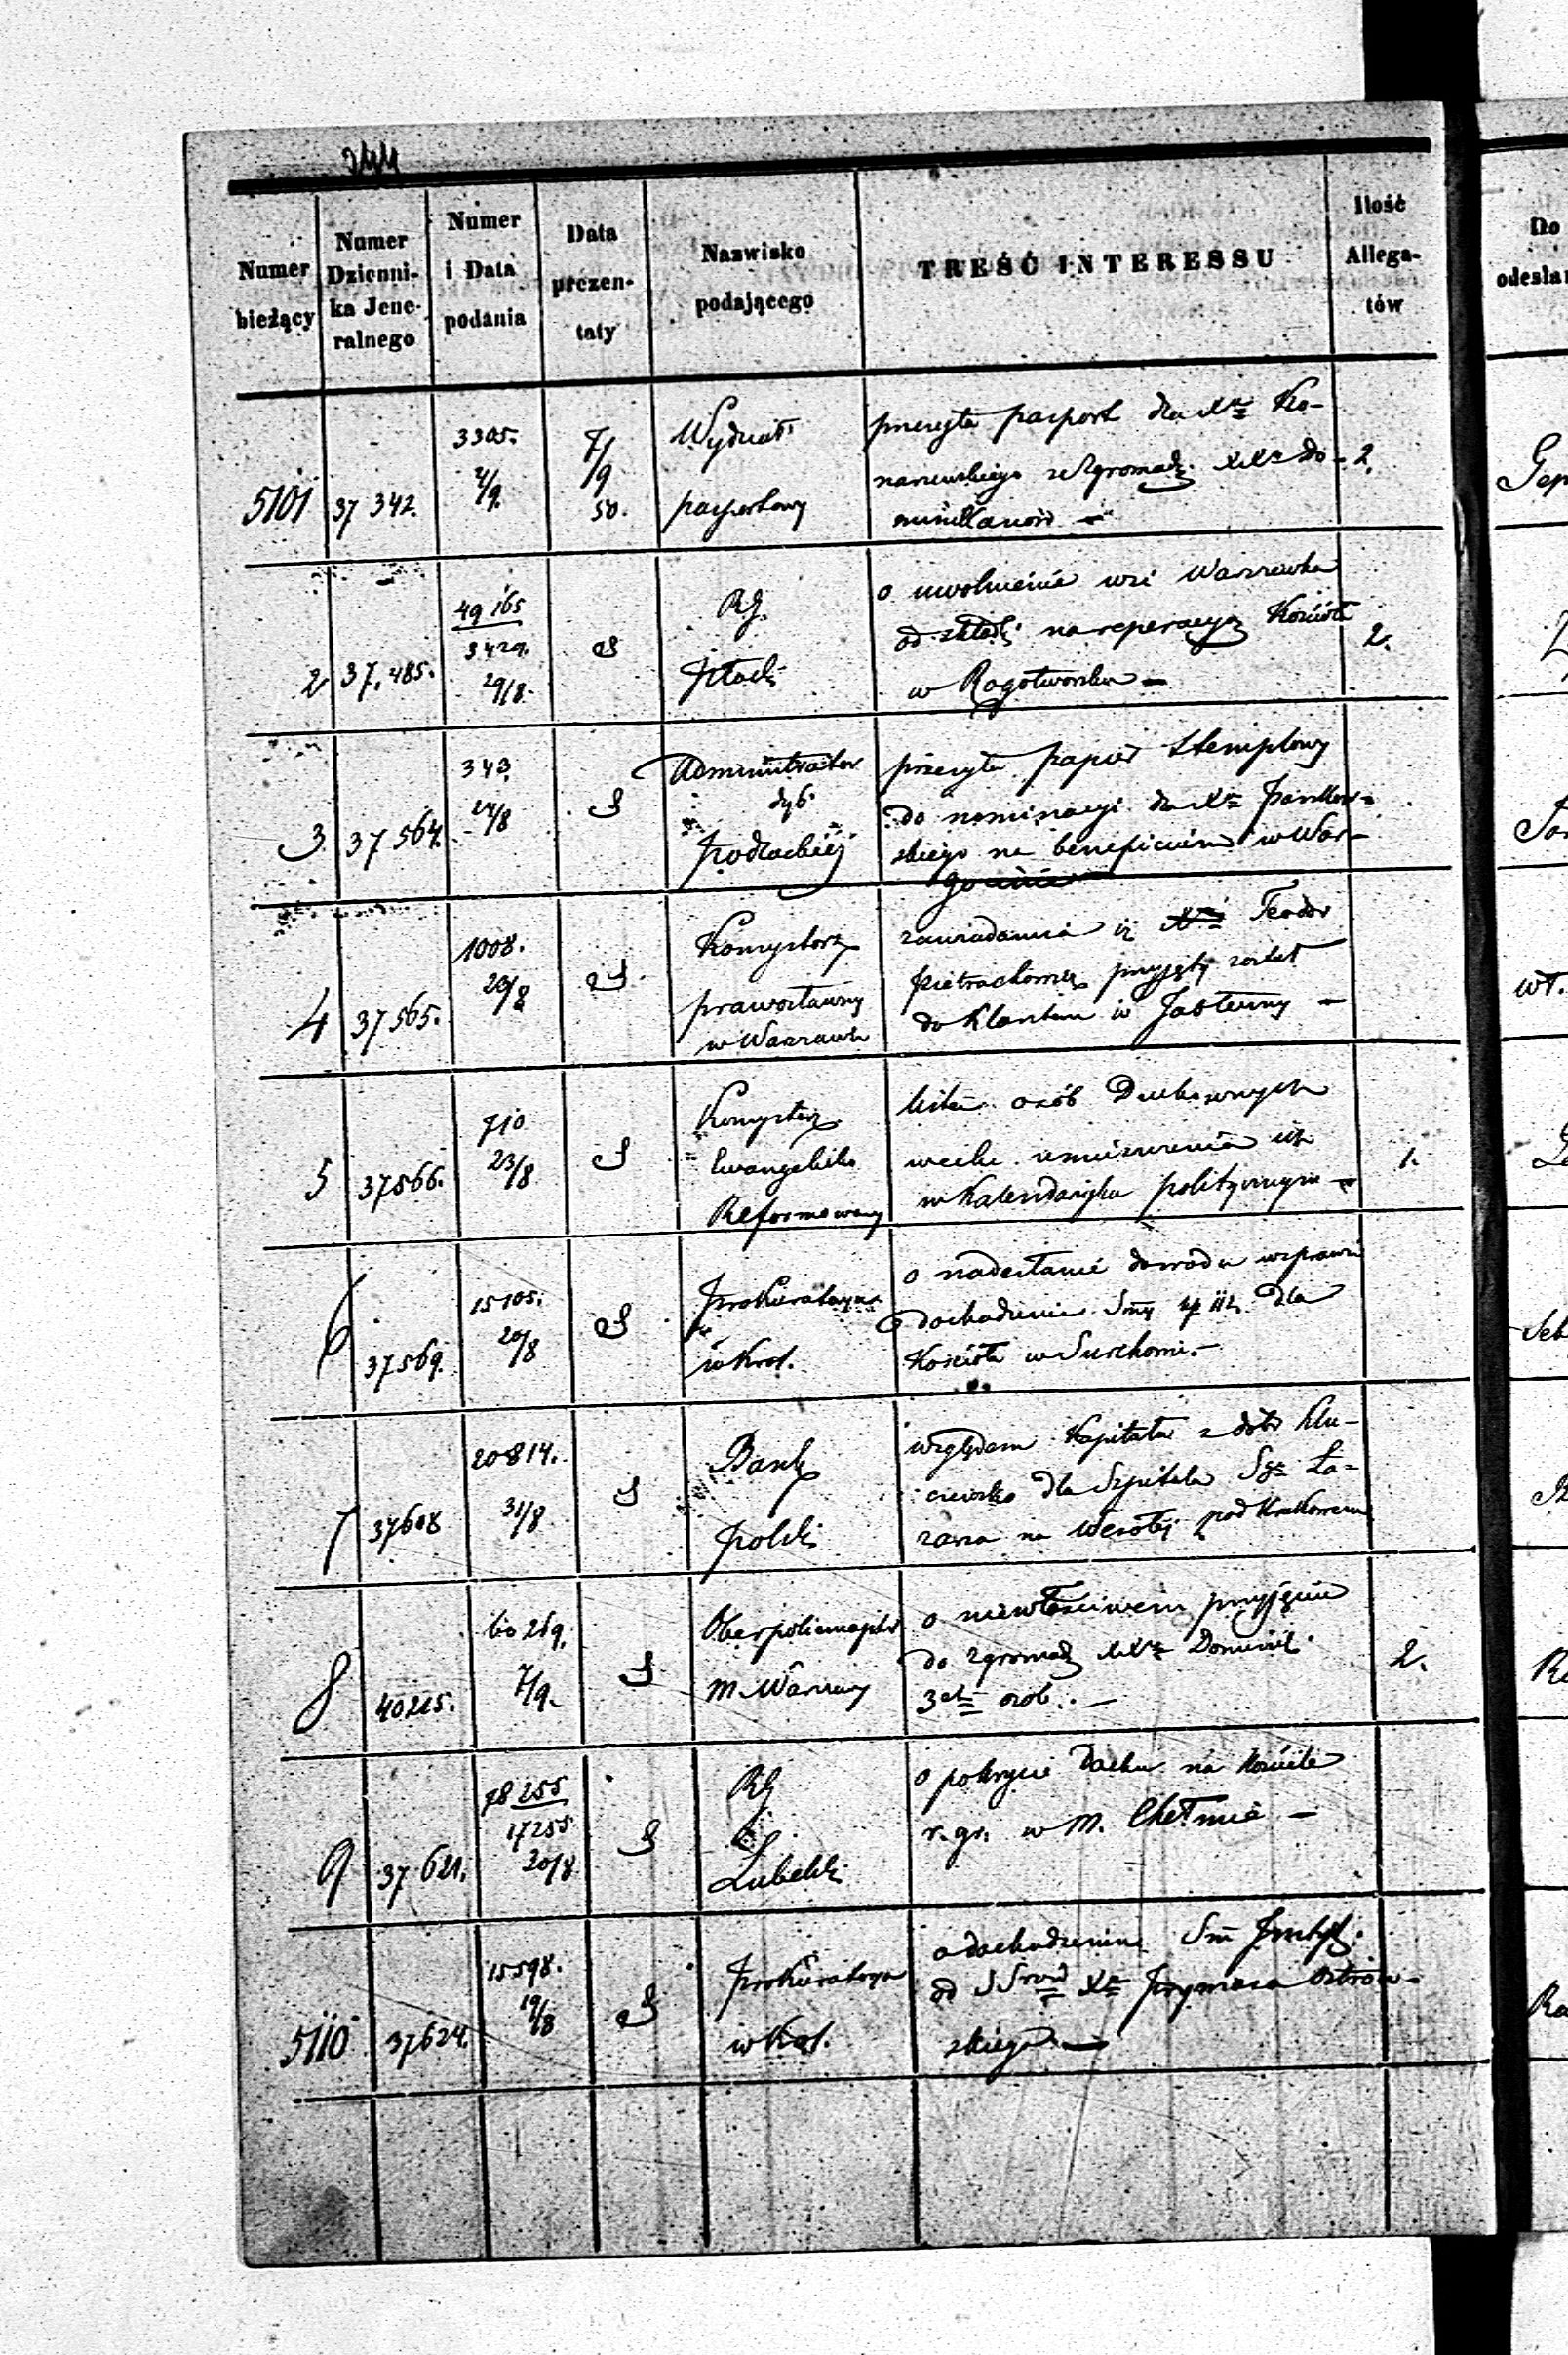 244
Numer bieżący
Numer Dzienni-
ka Jene-
ralnego
Numer
i Data
podania
Data
prezen-
taty
Nazwisko
podającego
TREŚĆ INTERESSU
Ilość
Allega-
tów
Do
5101 37 342. 3305. 4/9. 7/9 50.
Wydział
pasportowy
przesyła pasport dla Xa Ko-
narzewskiego ze Zgromadz. XXa Do-
minikanów — 2.
2 37,485. 49 165 3429. 29/8.
RG.
Płocki
o uwolnienie wsi Warszewka
od składki na reperacyą Kościoła
w Rogotworsku — 2.
3. 37 564. 343. 24/8
Administrator
dyć.
Podlaskiéj
przesyła papier stemplowy
do nominacyi dla Xa Pawłow-
skiego na beneficium w War-
4 37565. 1008. 28/8
Konsystorz
prawosławny
w Warszawie
zawiadamia iż Teodor
przyjęty został
do Klasztoru w Jabłeczny —
5 37566. 710 23/8
Konsystorz
Ewangelicko
Reformowany
lista osób Duchownych
w celu umieszczenia ich
w Kalendarzyku politycznym — 1.
6 37569. 15105. 20/8
Prokuratorya
w Król.
o nadesłanie dowodu w sprawie
dochodzenia Smy dla
Kościoła w Surchowie. —
7 37608 20814. 31/8
Bank
Polski
względem Kapitału z dóbr Klu-
czewsko dla Szpitala Sgo Ła-
zarza na Wesołej pod Krakowem
8 40215. 60269. 7/9.
Oberpolicmajster
m. Warszawy
o niewłaściwem przyjęciu
do Zgromadz. XXa Dominik.
3ch osób. — 2.
9 37 621. 78255 17255 30/8
RG
Lubelski
o pokrycie dachu na Kościele
r. gr. w m. Chełmie —
5110 37624. 15598. 19/8
Prokuratorya
w Król.
o dochodzenia Sm
od SSrów Xa Prymasa Ostrow-
skiego —